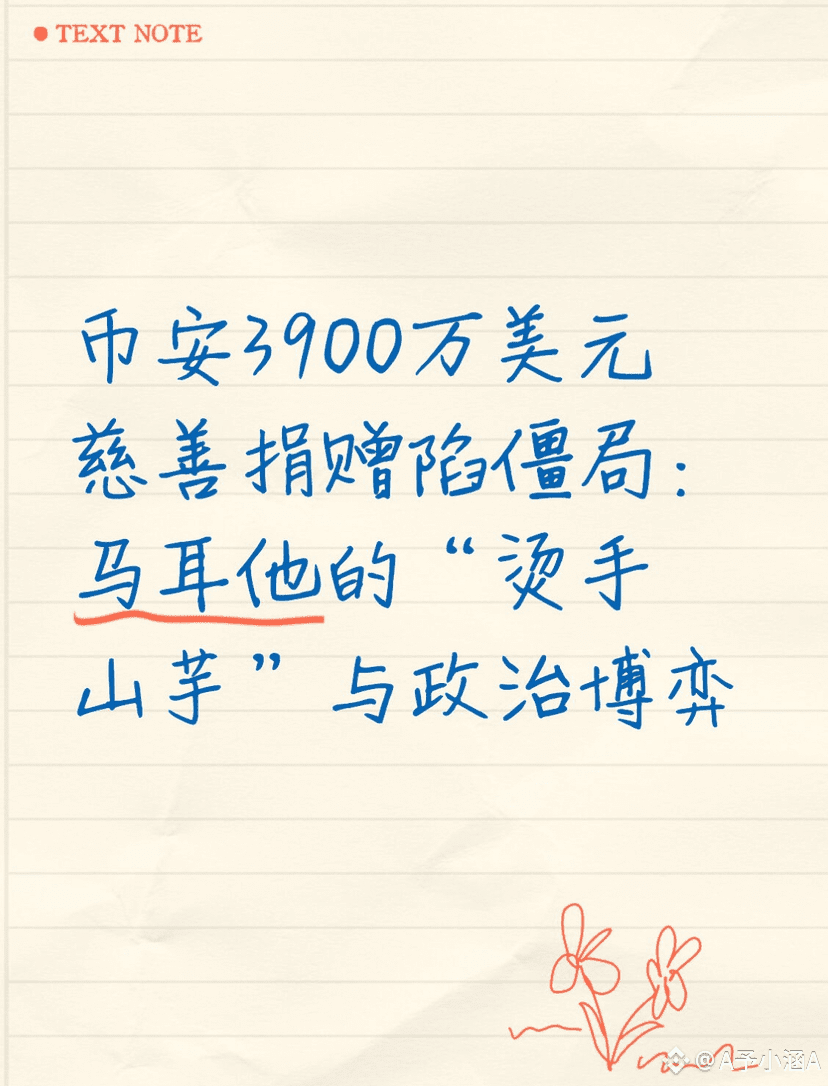 TEXT NOTE
币安3900万美元
慈善捐赠陷僵局：
马耳他的“烫手
山芋”与政治博弈
@A予小涵A